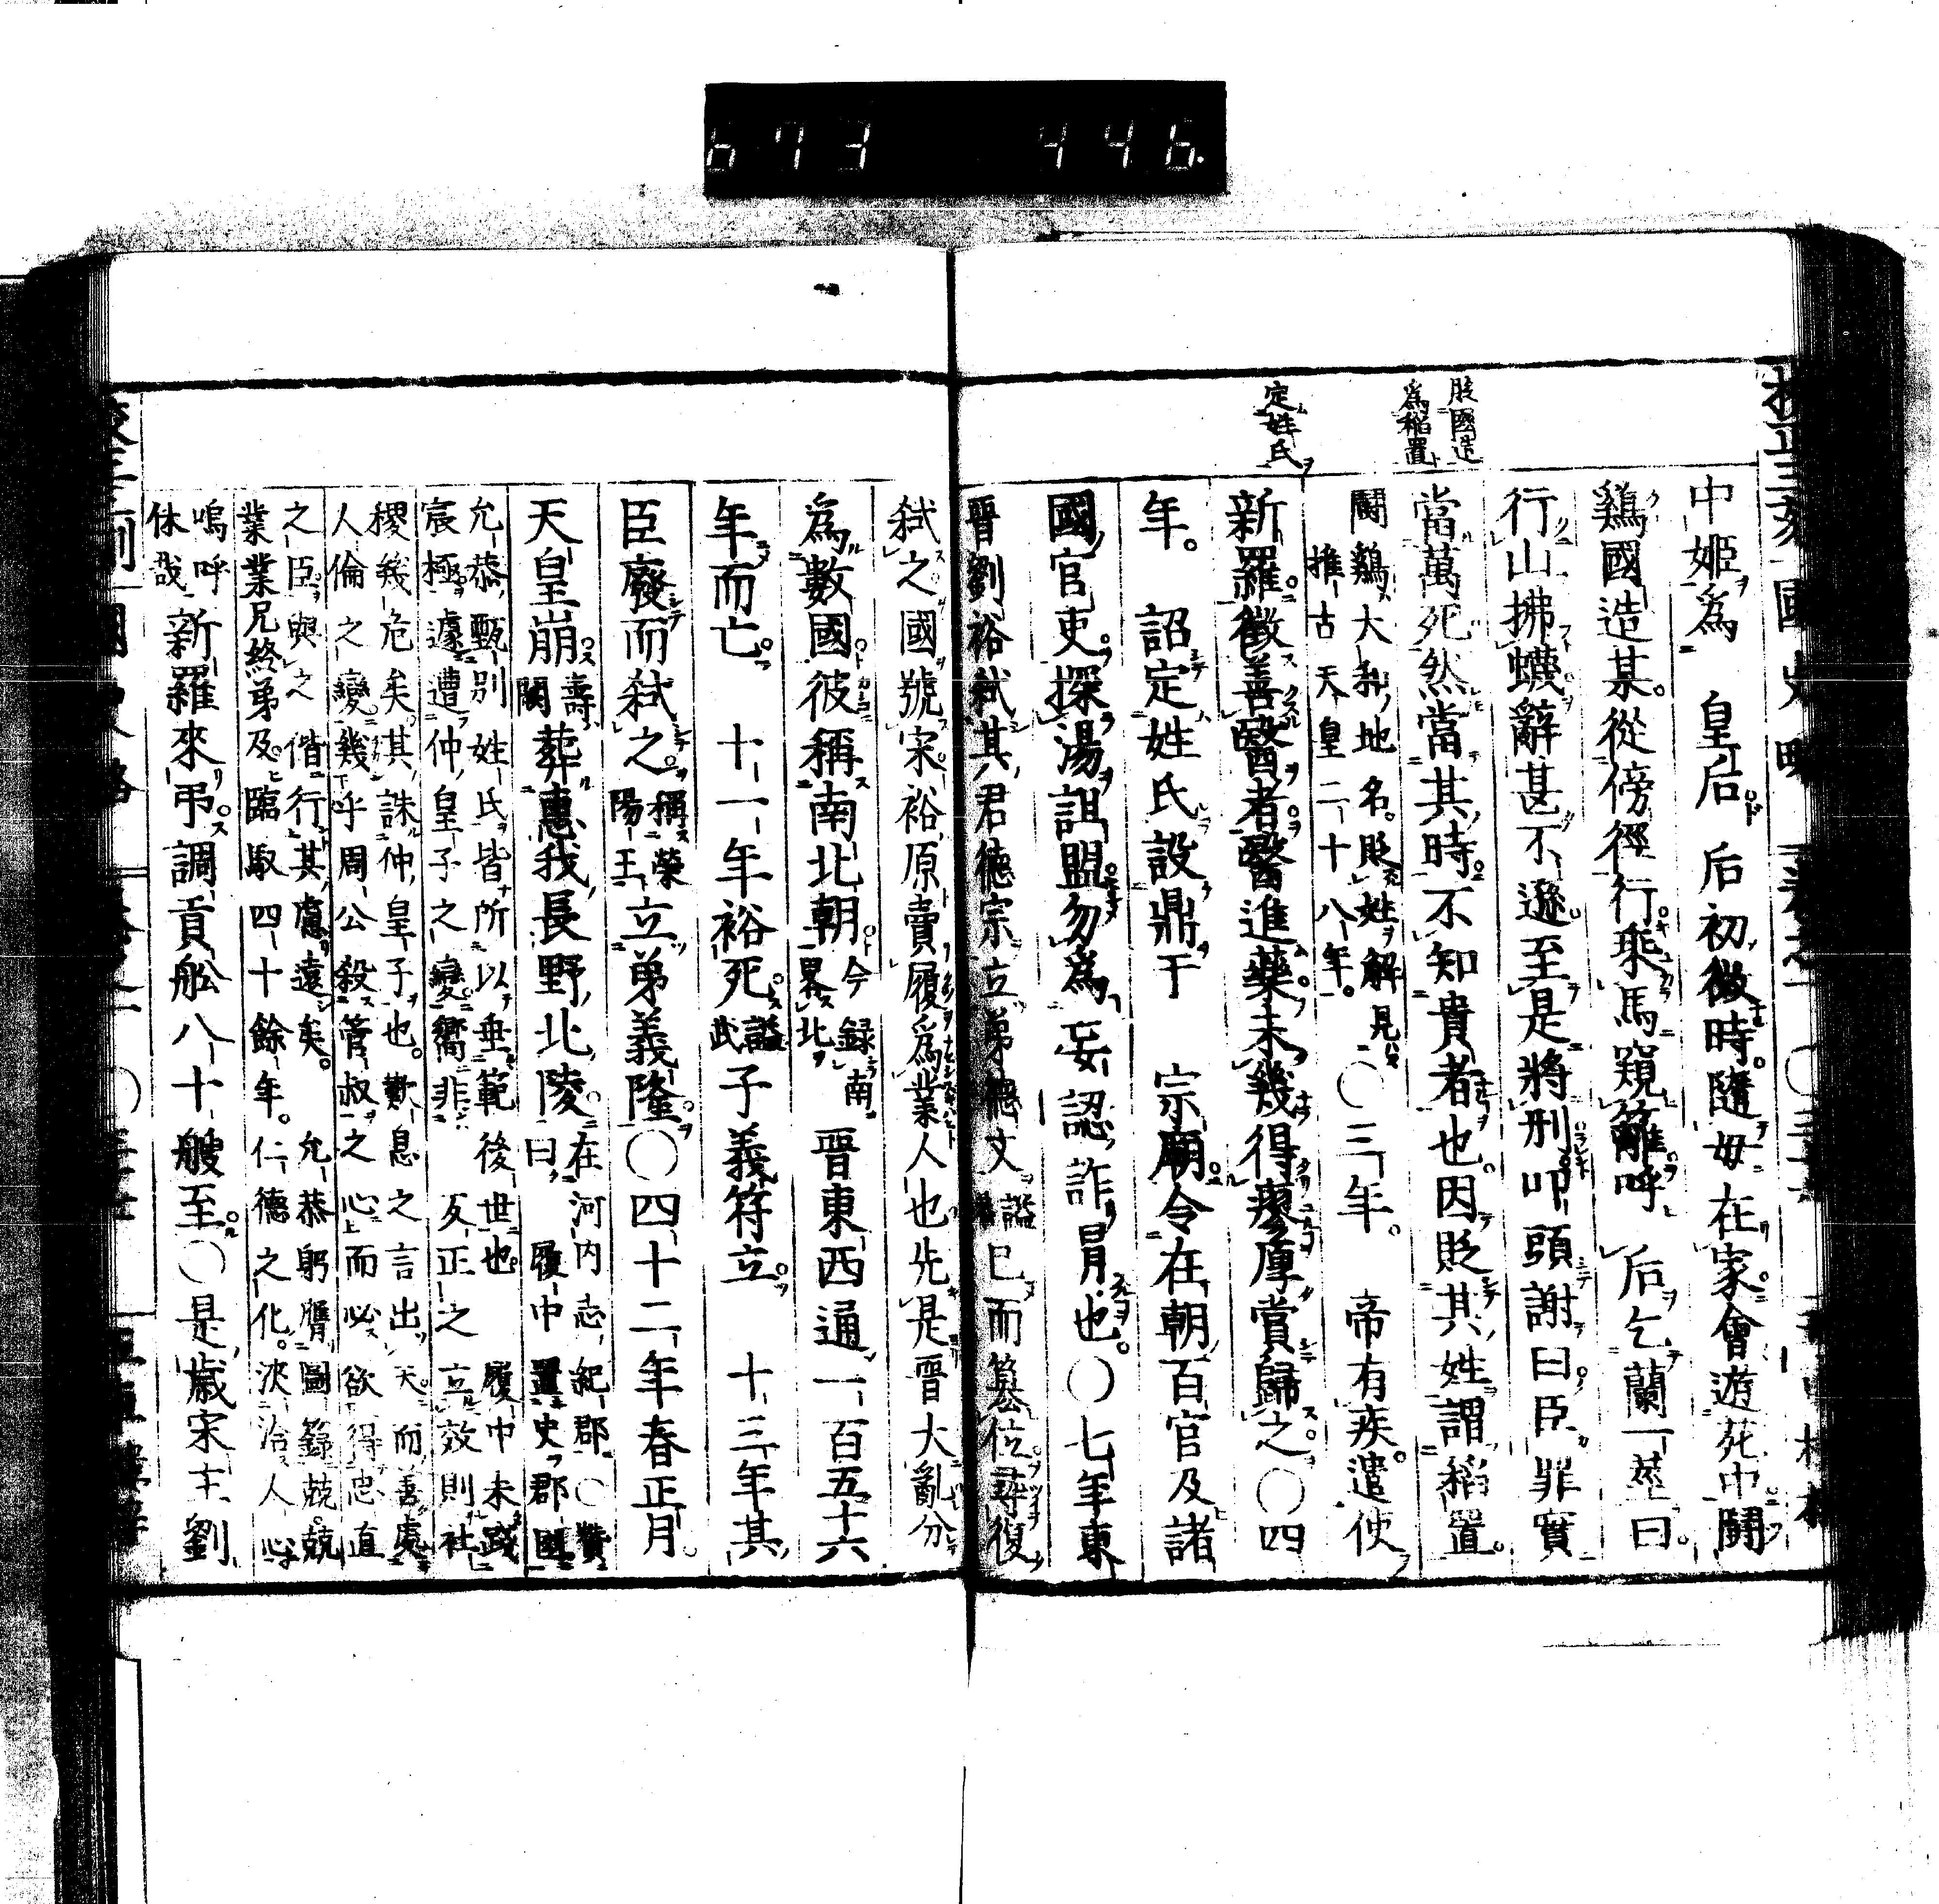 673 446.
貶國造
爲稻置
定姓氏
中姫爲 皇后 后初微時隨母在家會遊苑中鬪
鷄國造某從傍徑行乘馬窺籬呼 后乞蘭一莖曰
行山拂蠛辭甚不遜至是將刑叩頭謝曰臣罪實
當萬死然當其時不知貴者也因貶其姓謂稻置
鬪鷄大和地名貶姓解見
推古天皇二十八年
○三年 帝有疾遣使
新羅徵善醫者醫進藥未幾得瘳厚賞歸之○四
年 詔定姓氏設鼎于 宗廟令在朝百官及諸
國官吏探湯詛盟勿爲妄認詐冒也○七年東
晋劉裕弑其君德宗立弟德文
謚
已而簒位尋復
弑之國號宋裕原賣履爲業人也先是晋大亂分
爲數國彼稱南北朝
今錄南
畧北
晋東西通一百五十六
年而亡 十一年裕死
謚
武
子義符立 十三年其
臣廢而弑之
稱榮
陽王
立弟義隆○四十二年春正月
天皇崩
壽
闕
葬惠我長野北陵
在河内志紀郡○贊
曰 履中置史郡國
允恭甄別姓氏皆所以垂範後世也 履中未踐
宸極遽遭仲皇子之變嚮非 反正之立效則社
稷幾危矣其誅仲皇子也歎息之言出天而善處
人倫之變幾乎周公殺管叔之心而必欲得忠直
之臣與之偕行其慮遠矣 允恭躬膺圖籙兢兢
業業兄終弟及臨馭四十餘年 仁德之化浹洽人心
嗚呼
休哉
新羅來弔調貢舩八十艘至○是歲宋主劉